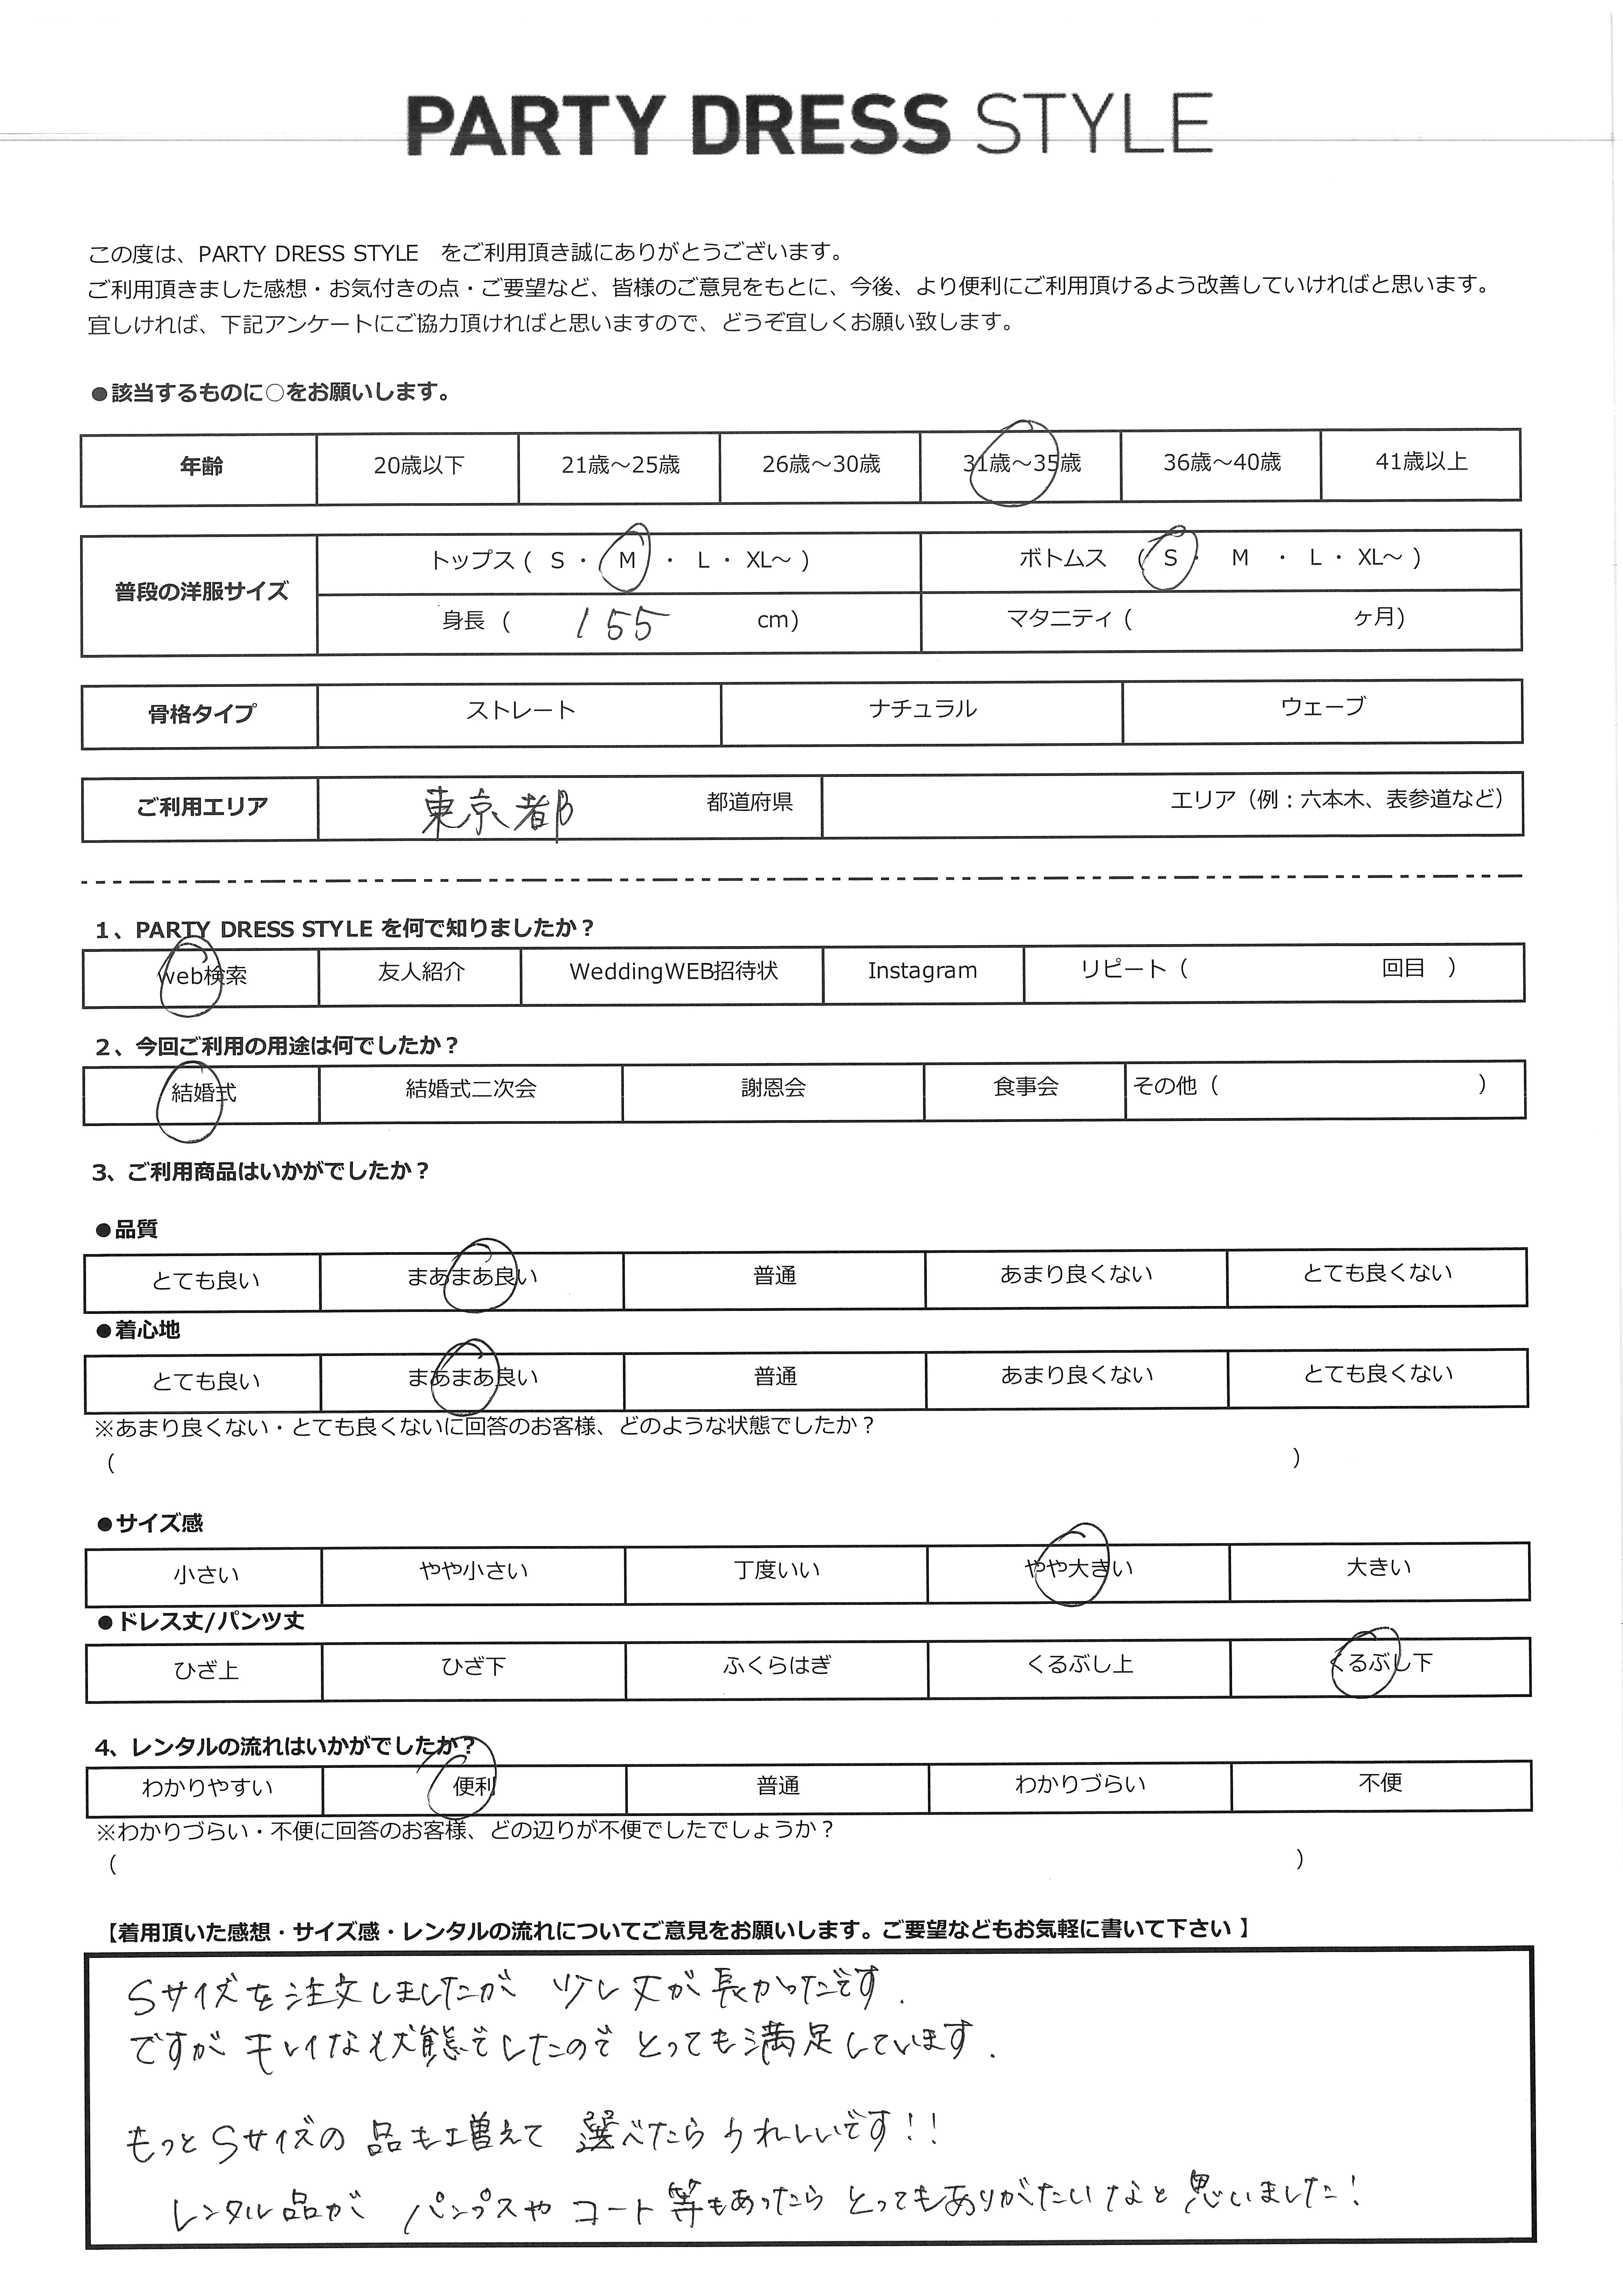 PARTY DRESS STYLE
この度は、PARTY DRESS STYLE　をご利用頂き誠にありがとうございます。
ご利用頂きました感想・お気付きの点・ご要望など、皆様のご意見をもとに、今後、より便利にご利用頂けるよう改善していければと思います。
宜しければ、下記アンケートにご協力頂ければと思いますので、どうぞ宜しくお願い致します。
●該当するものに○をお願いします。
年齢 20歳以下 21歳～25歳 26歳～30歳 31歳～35歳 36歳～40歳 41歳以上
普段の洋服サイズ トップス ( S ・ M ・ L ・ XL～ ) ボトムス ( S ・ M ・ L ・ XL～ )
身長 ( 155 cm) マタニティ ( ヶ月)
骨格タイプ ストレート ナチュラル ウェーブ
ご利用エリア 東京都 都道府県 エリア（例：六本木、表参道など）
1、PARTY DRESS STYLE を何で知りましたか？
web検索 友人紹介 WeddingWEB招待状 Instagram リピート（ 回目 ）
2、今回ご利用の用途は何でしたか？
結婚式 結婚式二次会 謝恩会 食事会 その他（ ）
3、ご利用商品はいかがでしたか？
●品質
とても良い まあまあ良い 普通 あまり良くない とても良くない
●着心地
とても良い まあまあ良い 普通 あまり良くない とても良くない
※あまり良くない・とても良くないに回答のお客様、どのような状態でしたか？
（ ）
●サイズ感
小さい やや小さい 丁度いい やや大きい 大きい
●ドレス丈/パンツ丈
ひざ上 ひざ下 ふくらはぎ くるぶし上 くるぶし下
4、レンタルの流れはいかがでしたか？
わかりやすい 便利 普通 わかりづらい 不便
※わかりづらい・不便に回答のお客様、どの辺りが不便でしたでしょうか？
（ ）
【着用頂いた感想・サイズ感・レンタルの流れについてご意見をお願いします。ご要望などもお気軽に書いて下さい 】
Sサイズを注文しましたが 少し丈が長かったです.
ですが キレイな状態でしたので とっても満足しています.
もっとSサイズの 品も増えて 選べたら うれしいです!!
レンタル品が パンプスや コート等もあったら とってもありがたいなと 思いました!